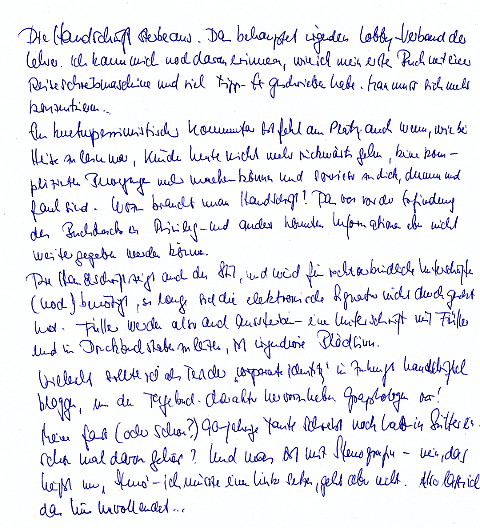 Die Handschrift sterbe aus. Das behauptet irgendein Lobby-Verband der
Lehrer. Ich kann mich noch daran erinnern, wie ich mein erstes Buch mit einer
Reiseschreibmaschine und viel Tipp-Ex geschrieben habe. Man muss sich mehr
konzentrieren.
Ein kulturpessimistischer Kommentar ist fehl am Platz, auch wenn, wie bei
zu lesen war, Kinder heute nicht mehr rückwärts gehen, keine kom-
plizierten Bewegungen mehr machen können und sowieso zu dick, dumm und
faul sind. Wozu braucht man Handschrift? Das war vor der Erfindung
des Buchdrucks ein Privileg und anders konnten Informationen eben nicht
weiter gegeben werden können.
Die Handschrift zeigt auch den Stil, und wird für rechtsverbindliche Unterschriften
(noch) benötigt, so lange sich die elektronische Signatur nicht durchgesetzt
hat. Füller werden also auch aussterben - eine Unterschrift mit Füller
und in Druckbuchstaben zu leisten, ist irgendwie Blödsinn.
Vielleicht sollte ich als Teil der "corporate identity" in Zukunft handschriftlich
bloggen, um den Tagebuch-Charakter hervorzuheben. Graphologen vor!
Meine fast (oder schon?) 90-jährige Tante schreibt noch halb in Sütterlin -
schon mal davon gehört? Und was ist mit Stenografie - nein, das
heißt nun "Steno" - ich müsste eine Links setzen, geht aber nicht. Also lass ich
das hier unvollendet...